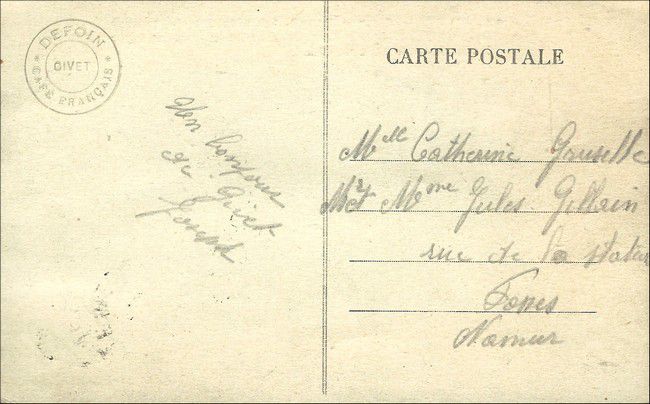 DEFOIN
GIVET
* CAFÉ FRANÇAIS *
CARTE POSTALE
Un bonjour
de Givet
Joseph
Melle Catherine
Mr et Mme Jules Gillain
rue de la
Namur